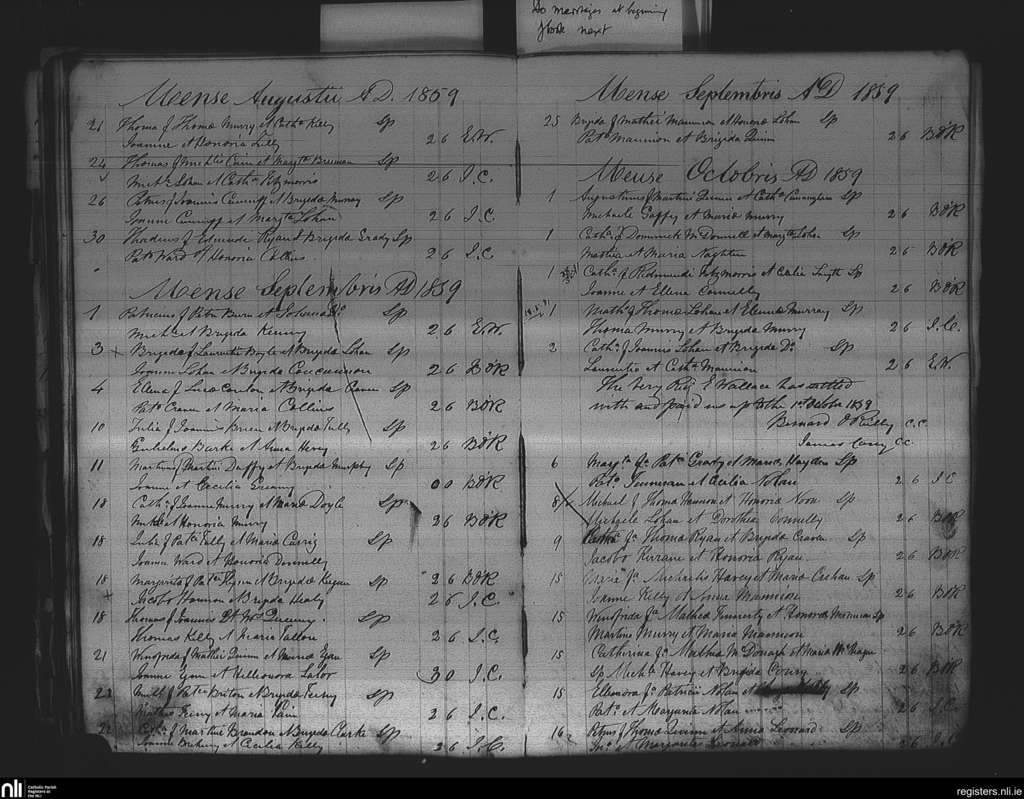 Do marriages at beginning
of book next
Mense Augustii A.D. 1859
21 Thoma f Thoma Murry et Cath. Kelly Sp
Joanne et Honoria Tully 2 6 E.W.
24 Thomas f Michlis Cain et Margt. Brennan Sp
Michl. Lohan et Cath. Fitzmorris 2 6 J.C.
26 Petrus f Joannis Cunniff et Brigida Murray Sp
Joanne Cunniff et Margta Lohan 2 6 J.C.
30 Thadeus f Edmundi Ryan et Brigida Grady Sp
Patk Ward et Honoria Collins 2 6 J.C.
Mense Septembris AD 1859
1 Patricius f Petri Burn et Johanna Do. Sp
Michl et Brigida Kenny 2 6 E.W.
3 Brigida f Laurentii Boyle et Brigida Lohan Sp
Joanne Lohan et Brigida Concannon 2 6 BO'R
4 Elena f Luca Conlon et Brigida Craven Sp
Patk. Craven et Maria Collins 2 6 BO'R
10 Julia f Joannis Brien et Brigida Tully Sp
Gulielmo Burke et Anna Heny 2 6 BO'R
11 Martinus f Martini Duffy et Brigida Murphy Sp
Joanne et Cecilia Greany 0 0 BO'R
18 Cath. f Joannis Murry et Maria Doyle Sp
Michl et Honoria Murry 2 6 BO'R
18 Julia f Patk. Tully et Maria Sp
Joanne Ward et Honoria Donnelly
18 Margarita f Patk. Flynn et Brigida Keegan Sp 2 6 BO'R
Jacobo Hannon et Brigida Healy 2 6 J.C.
18 Thomas f Joannis Sp
Thomas Kelly et Maria Fallon 2 6 J.C.
21 Winefrida f Mathei Quinn et Maria Sp
Joanne et Helleonora Lalor 3 0 J.C.
22 f Patk. et Brigida Sp
et Maria 2 6 J.C.
22 Cath. f Martini et Brigida Clarke Sp
Joanne et Cecilia Kelly 2 6 J.C.
Mense Septembris AD 1859
25 Brigida f Mathei Mannion et Honora Lohan Sp
Patk. Mannion et Brigida Quinn 2 6 BO'R
Mense Octobris AD 1859
1 Augustinus f Martini Quinn et Cath. Cunningham Sp
Michaele Gaffey et Maria Murry 2 6 BO'R
1 Cath. f Dominick McDonnell et Margta Lohan Sp
Mathia et Maria Naghten 2 6 BO'R
1 Cath. f Redmundi Fitzmorris et Celia Smyth Sp
Joanne et Ellena Connelly 2 6 BO'R
1 Math. f Thoma Lohan et Elena Murray Sp
Thoma Murry et Brigida Murry 2 6 J.C.
2 Cath. f Joannis Lohan et Brigida Do. Sp
Laurentio et Cath. Mannion 2 6 E.W.
The Very Revd E Wallace has settled
with and paid us up to the 1st October 1859
Bernard O'Reilly C.C.
James Corry CC
6 Margt. fa Patk. Grady et Maria Hayden Sp
Patk. Finneran et Cecilia Nolan 2 6 J C
8 Michael f Thoma Mannion et Honoria Noon Sp
Michaele Lohan et Dorothea Donnelly 2 6 BO'R
9 fs Thoma Ryan et Brigida Craven Sp
Jacobo Kirrane et Honoria Ryan 2 6 BO'R
15 Maria fa Michaelis Harvey et Maria Sp
Joanne Kelly et Anna Mannion 2 6 BO'R
15 Winefrida fa Mathei Finnerty et Honora Mannion Sp
Martino Murry et Maria Mannion 2 6 BO'R
15 Catherina fa Mathei McDonagh et Maria
Sp Michl. Harvey et Brigida 2 6 BO'R
15 Elleonora fa Patricii Nolan et Sp
Patk. et Margarita Nolan 2 6 J.C.
16 Petrus f Thoma Quinn et Anna Leonard Sp
Jno. et Margarita Leonard 2 6 J.C.
nli
Catholic Parish
Registers at
the NLI
registers.nli.ie